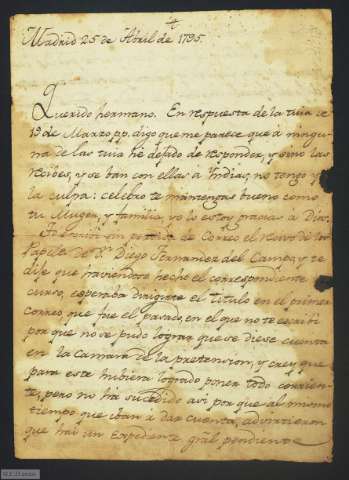 4
Madrid 25 de Abril de 1795.
Querido hermano. En respuesta de la tuia de
19 de Marzo pp. digo que me parece que á ningu-
na de las tuias hé dejado de responder, y sino las
recives, y se ban con ellas a Yndias, no tengo yo
la culpa: celebro te mantengas bueno como
tu Muger, y familia, yo lo estoy gracias a Dios.
de Correo el recivo de los
Papeles de Dn Diego Fernandez del Campo, y te
dije que haviendose hecho el correspondiente
curso, esperaba dirigirte el Titulo en el primer
Correo, que fue el pasado, en el que no te escribi
por que no se pudo lograr que se diese cuenta
en la Camara de la pretension, y crey que
para este hubiera logrado poner todo corrien-
te, pero no ha sucedido asi por que al mismo
tiempo que iban á dar cuenta, advirtieron
que hai un Expediente gral pendiente